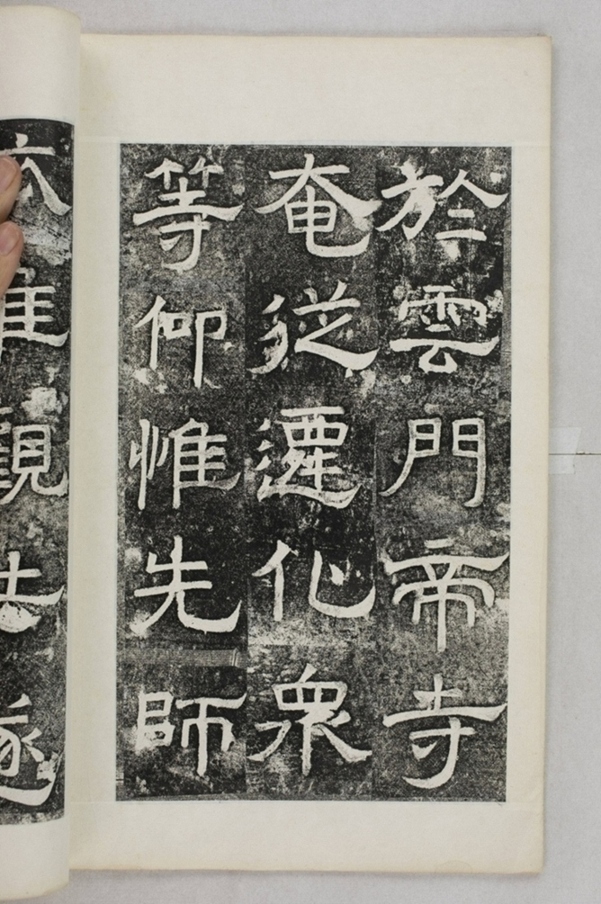 於雲門帝寺
奄從遷化衆
等仰惟先師